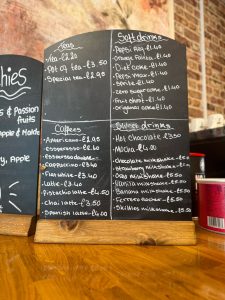 hies
s & Passion
fruits
Apple & 
y, Apple
Teas
Tea - £2.20
Pot of tea - £3.50
Special tea - £2.95
Coffees
Americano - £2.95
Espresso - £2.40
Cappuccino - £3.40
Flat white - £3.40
latte - £3.40
Pistachio latte - £4.50
Chai latte - £3.50
Spanish latte - £4.00
Soft drinks
Pepsi £1.40
Orange Fanta £1.40
Diet coke - £1.40
Pepsi max - £1.40
Sprite - £1.40
zero sugar coke - £1.40
Fruit shoot - £1.40
original coke - £1.40
drinks
Hot Chocolate - £3.50
Mocha - £4.00
Chocolate milkshake - £5.50
Strawberry milkshake - £5.50
Oreo milkshake - £5.50
Vanilla milkshake - £5.50
Banana milkshake - £5.50
Ferrero rocher - £5.50
Skittles milkshake - £5.50